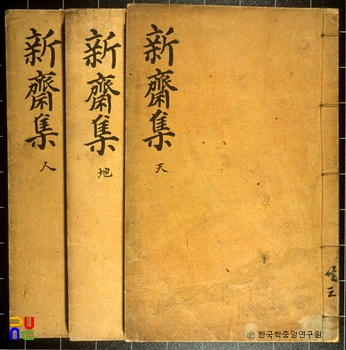 新齋集
天
新齋集
地
新齋集
人
共三
© 한국학중앙연구원